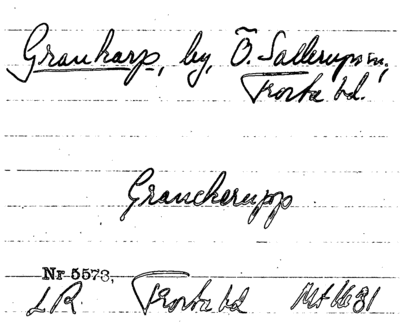 Grankarp, by, Ö. Sallerups sn,
Frosta hd.
Granckerupp
Nr 5573,
LR. Frosta hd